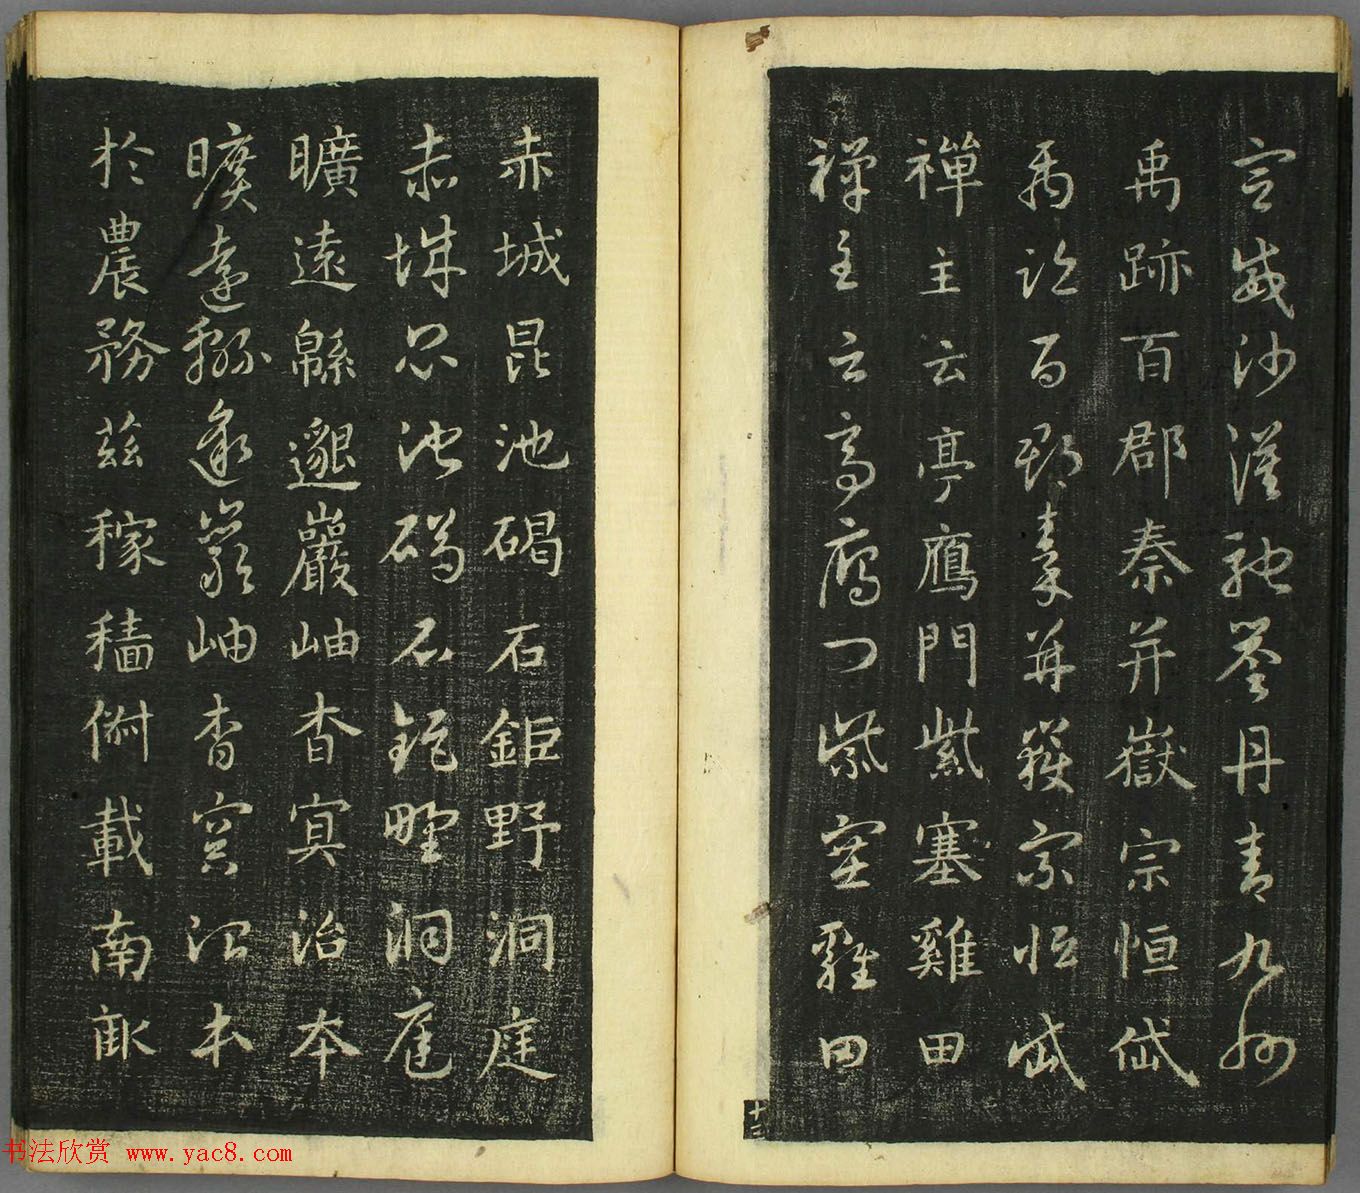 宣威沙漠馳譽丹青九州
禹跡百郡秦并嶽宗恒岱
禹跡百郡秦并嶽宗恒岱
禪主云亭鴈門紫塞雞田
禪主云亭鴈門紫塞雞田
赤城昆池碣石鉅野洞庭
赤城昆池碣石鉅野洞庭
曠遠緜邈巖岫杳冥治本
曠遠緜邈巖岫杳冥治本
於農務茲稼穡俶載南畝
十三
书法欣赏 www.yac8.com